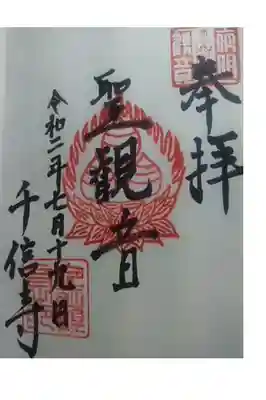 奉拝
聖観音
令和二年七月十九日
千信寺